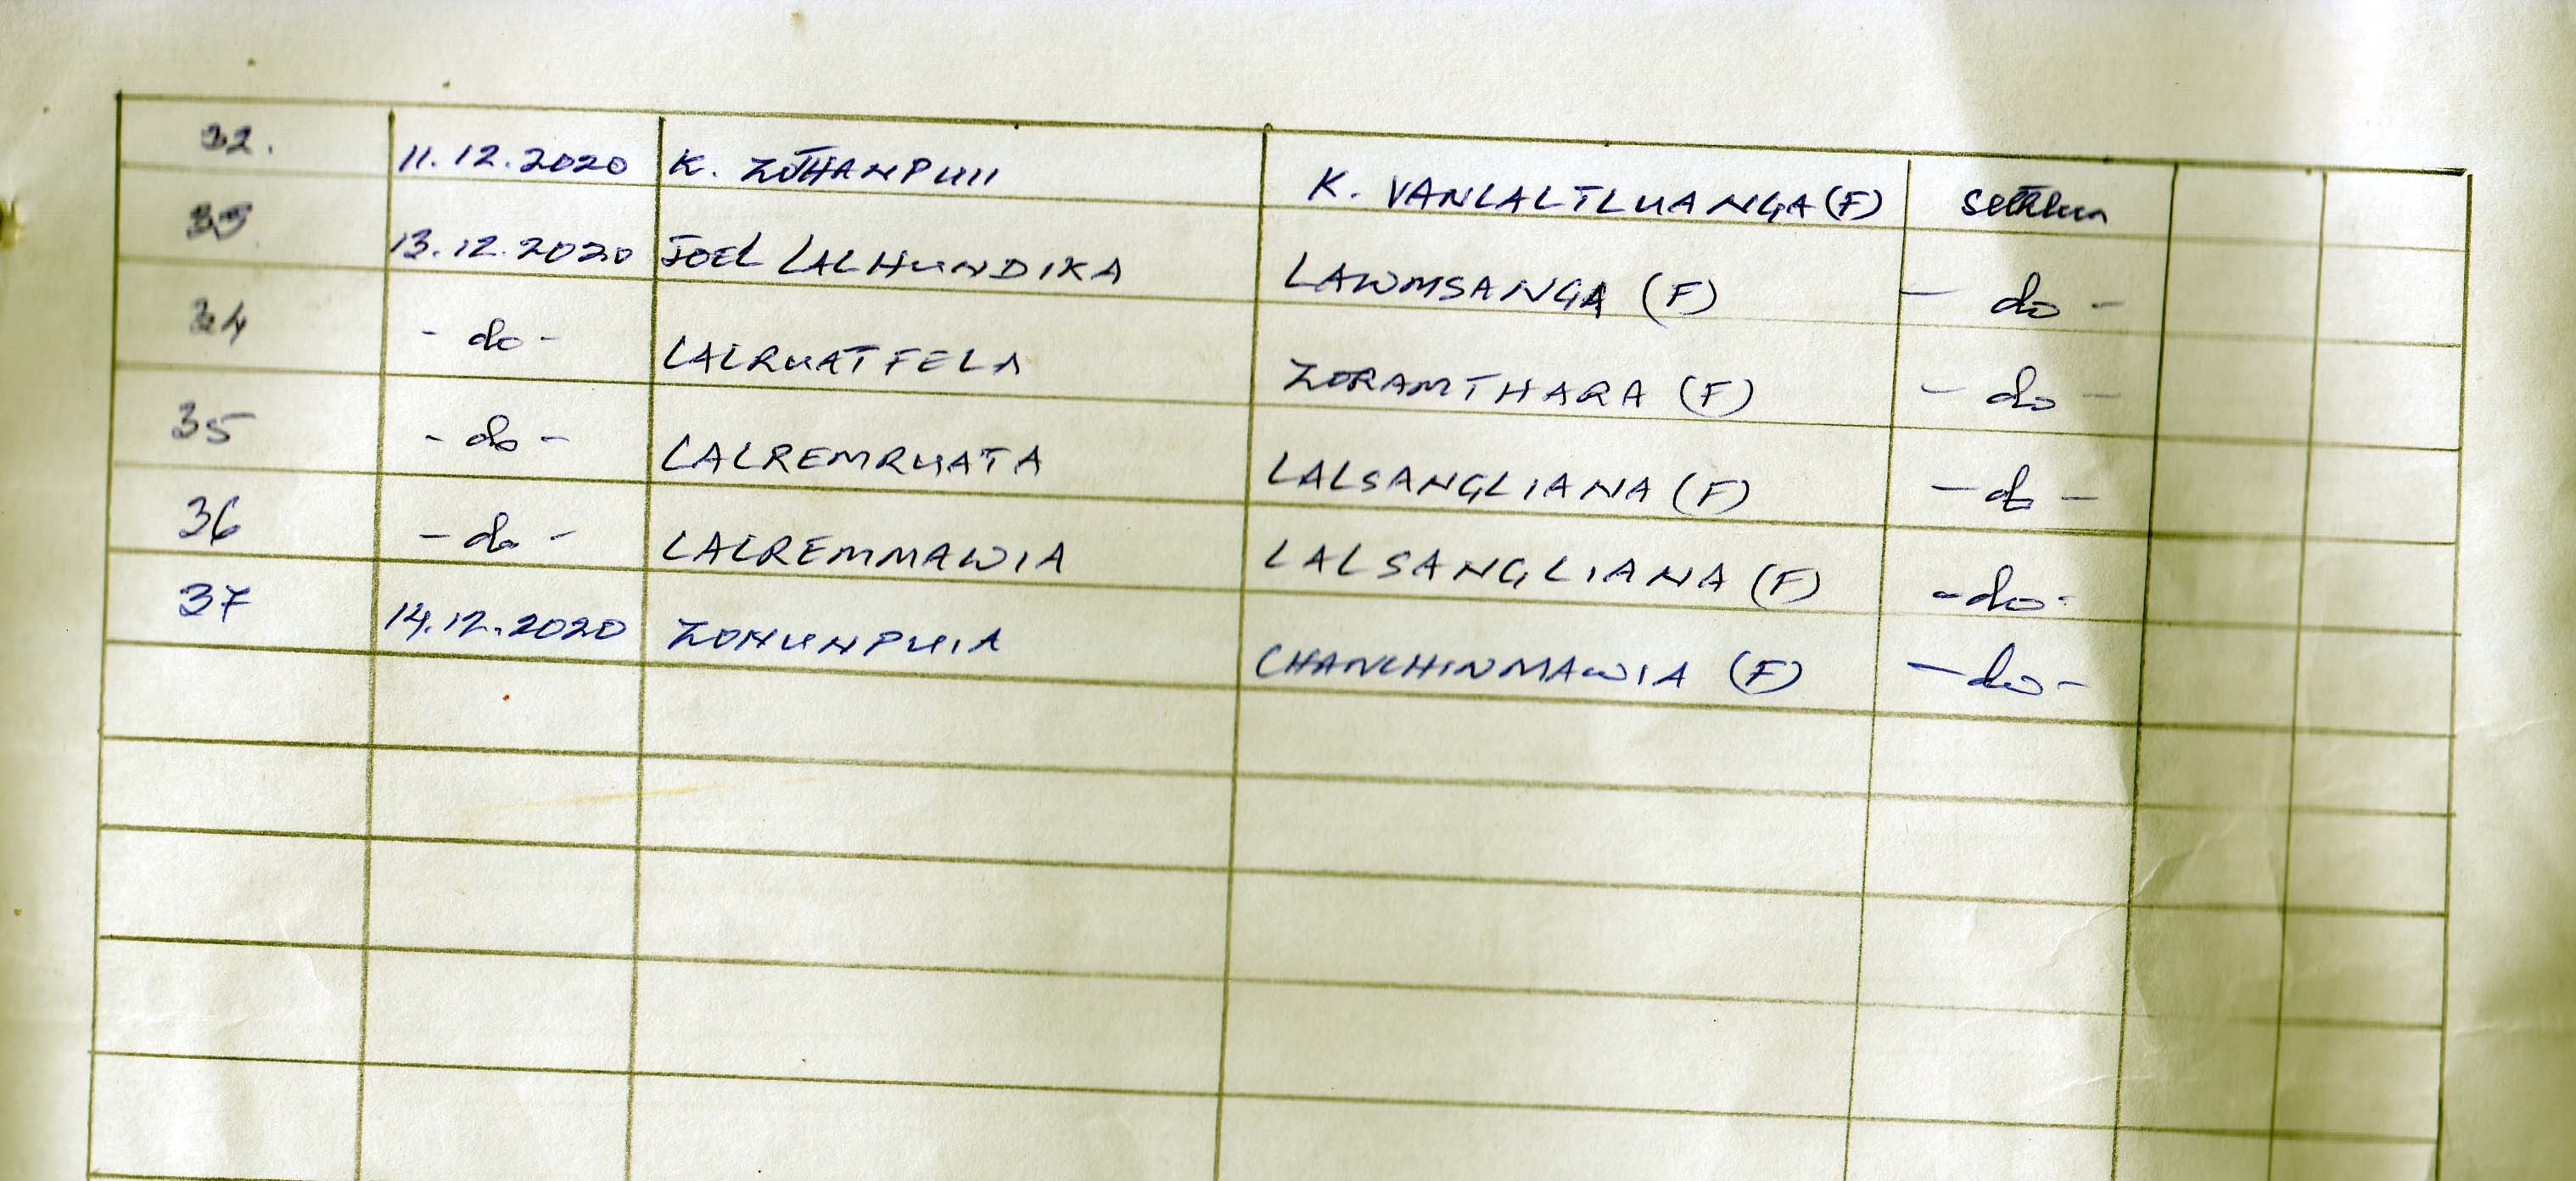 32. 11.12.2020 K. ZOTHANPUII K. VANLALTLUANGA (F)
33. 13.12.2020 JOEL LALHUNDIKA LAWMSANGA (F) - do -
34 - do - LALRUATFELA ZORAMTHARA (F) - do -
35 - do - LALREMRUATA LALSANGLIANA (F) - do -
36 - do - LALREMMAWIA LALSANGLIANA (F) - do -
37 14.12.2020 ZOHUNPUIA CHANCHINMAWIA (F) - do -